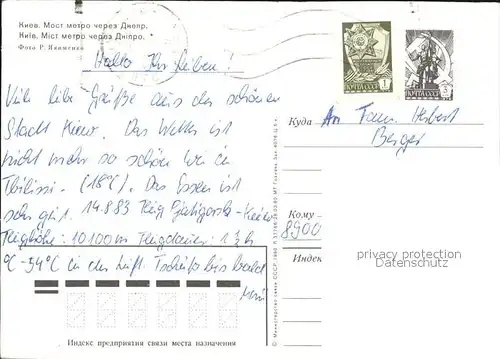 Киев. Мост метро через Днепр.
Київ. Міст метро через Дніпро.
Фото Р. Якименко
Hallo Ihr Lieben!
Viele liebe Grüße aus der schönen
Stadt Kiew. Das Wetter ist
nicht mehr so schön wie in
Tbilissi. (18°C). Das Essen ist
sehr gut. 14.8.83 Flug Pjatigorsk-Kiew
Flughöhe: 10100m Flugdauer: 1 3/4 h
°C -54°C in der Luft. Tschüß bis bald
ПОЧТА СССР 1
ПОЧТА СССР 3
Куда
An Fam. Herbert
Berger
Кому
8900
privacy protection
Datenschutz
Индекс
© Министерство связи СССР, 1982
Индекс предприятия связи места назначения